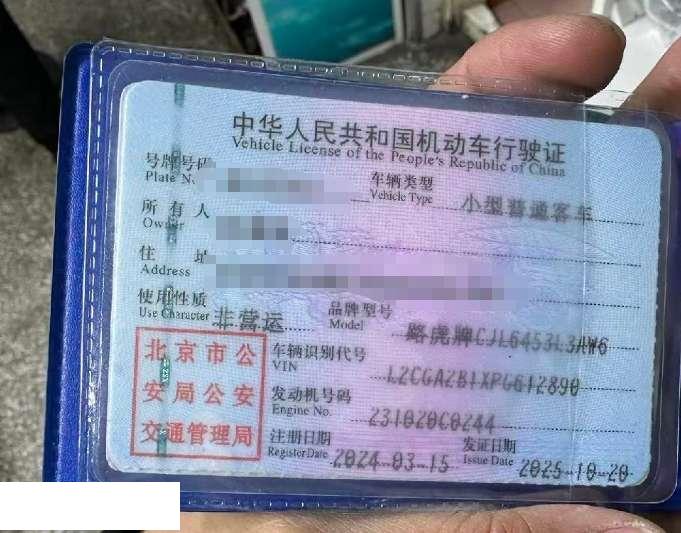 中华人民共和国机动车行驶证
Vehicle License of the People's Republic of China
号牌号码
Plate No.
车辆类型
Vehicle Type
小型普通客车
所有人
Owner
住址
Address
使用性质
Use Character
非营运
品牌型号
Model
路虎牌CJL6453L3AW6
北京市公
安局公安
交通管理局
车辆识别代号
VIN
L2CGA2B1XPG612890
发动机号码
Engine No.
231020C0244
注册日期
Register Date
2024-03-15
发证日期
Issue Date
2025-10-20